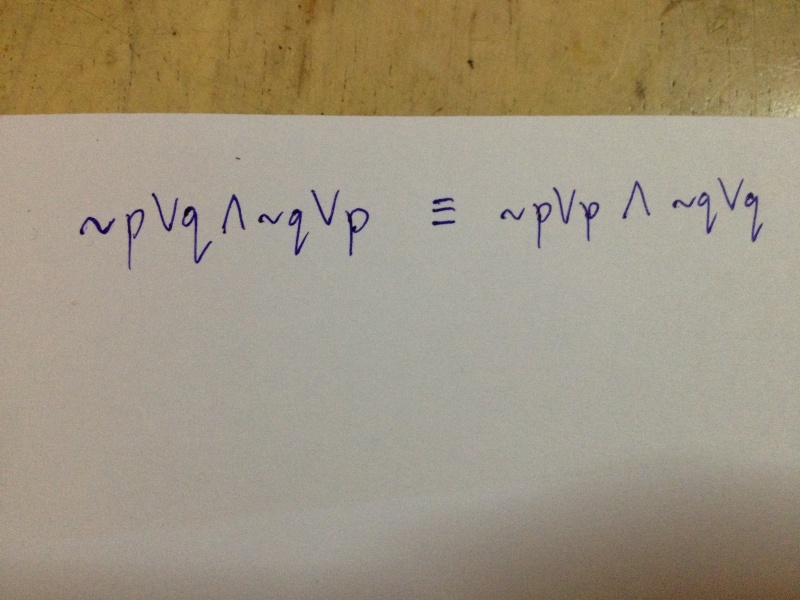 ~p∨q ∧ ~q∨p ≡ ~p∨p ∧ ~q∨q